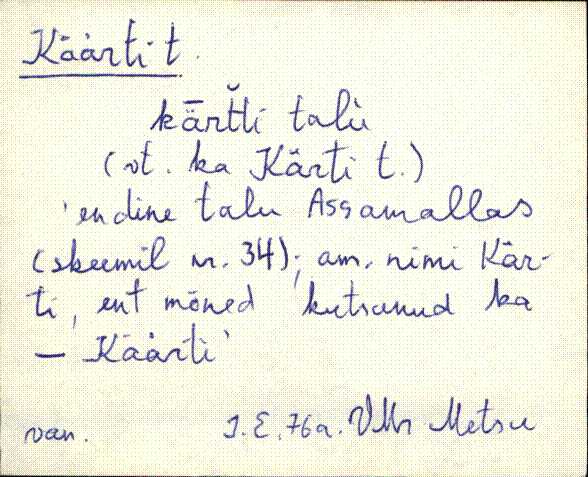 Käärti t.
kä̆̄rtti talù
(vt. ka Kärti t.)
'endine talu Assamallas
(skeemil nr. 34); am. nimi Kär-
ti, ent mõned kutsunud ka
— Käärti'
van. J.E. 76a. VMr Metsu